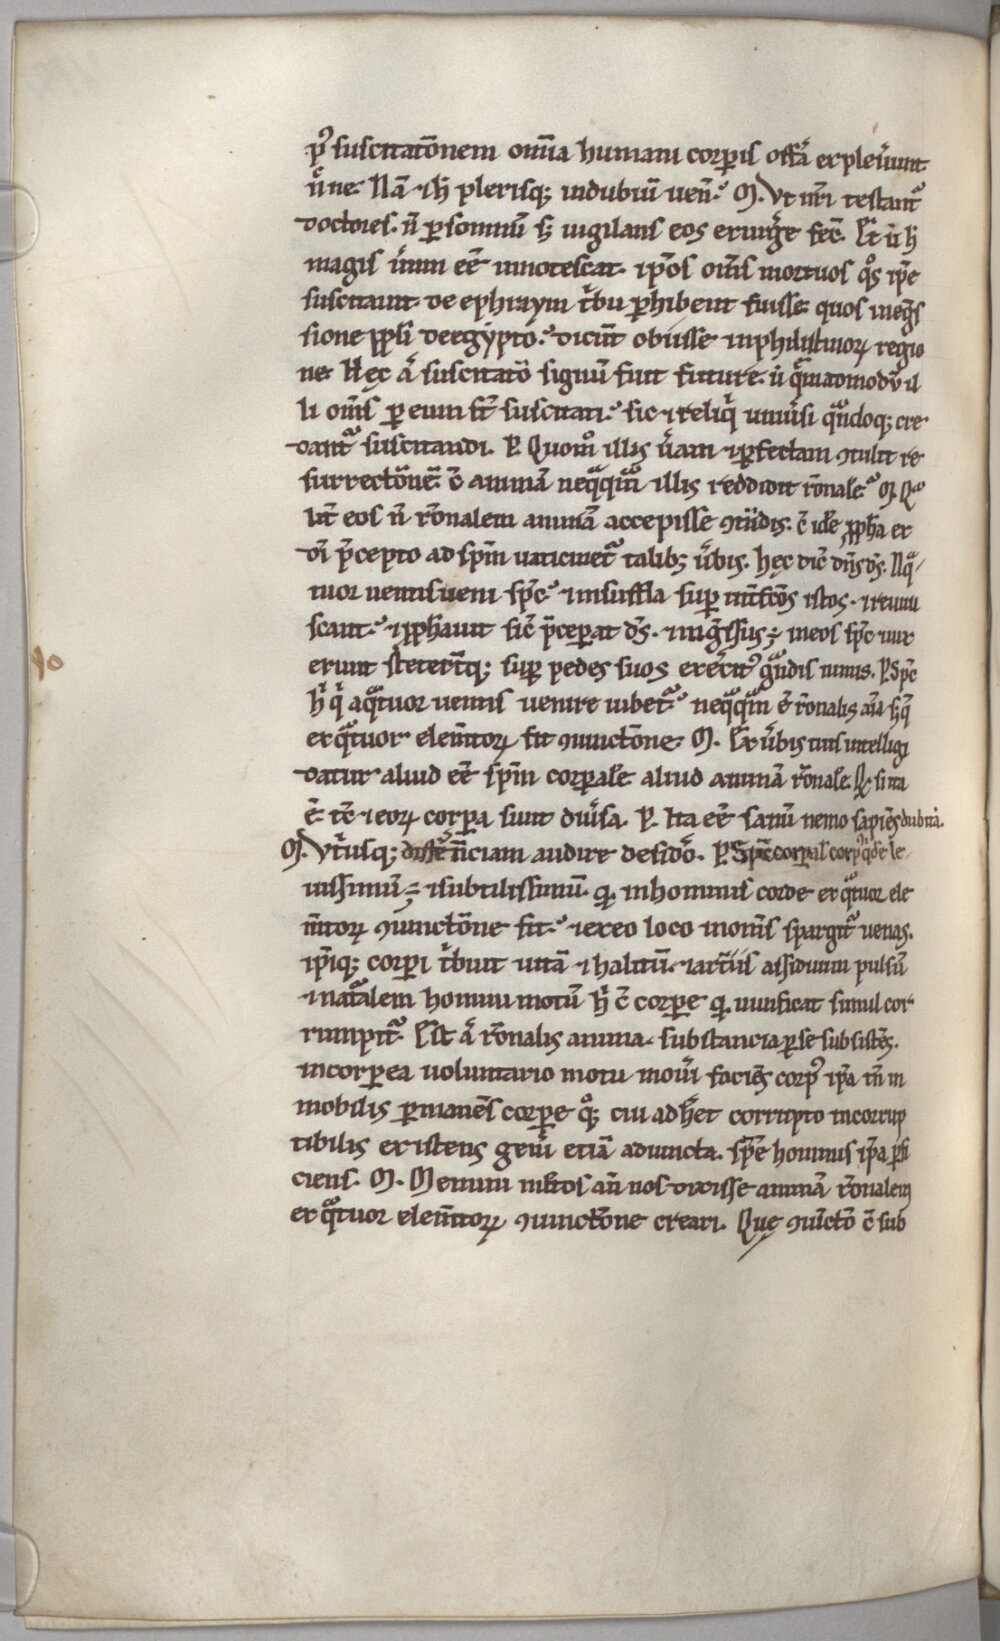 p᷒ suscitatōnem om̅ia humani corꝑis offic̄ expleꝟunt
u̅ ne. Nā ⁊ h̄ pleriſq; indubiū uen̄. M. Vt nr̄i testant᷑
doctores. n̄ ꝑ somnū s; uigilans eos erurḡe fec̄. Et ū h̄
magis u̅um eē innotescat. ip̄os om̄s mortuos q̊s ip̄e
suscitauit. de ephraym t̄bu ꝑhibent fuisse. quos ineg̃s
sione pp̄li deegypto. dicūt obiisse inphilistinoꝝ regio
ne. Hęc aū suscitatō signū fuit future. ū q̄madmodū il
li om̄s ꝑ eum st̄ suscitati. sic ⁊ reliq̄ uniu̅si q̄ndoq; cre
dant᷑ suscitandi. P. Quom̊ illis u̅am ⁊ ꝑfectam ꝯtulit re
surrectōnē. c̄ animā neq̄q̄m illis reddidit r̄onalē. M. Qd̄
līt eos n̄ r̄onalem animā accepisse ꝯtīdis. c̄ idē ꝓph̄a ex
dī p̄cepto ad sp̄m uaticinet᷑ talib; u̅bis. hęc dic̄ dn̄s dš. Aq̄
tuor uentis ueni sp̄c. ⁊ insuffla suꝑ int̄fectos istos. ⁊ reuiui
scant. ⁊ ꝓph̄auit sic̄ p̄ceperat dš. ⁊ ing̃ssus ÷ ineos sp̄c ⁊ uix
erunt steter̄tq; suꝑ pedes suos exercit᷒ g̃ndis nimis. P. Sp̄c
h̄ q̄ aq̄tuor uentis uenire iubet᷑. neq̄q̄m ē r̄onalis aīa s; q̄
ex q̄tuor elem̄toꝝ fit ꝯiunctōne. M. Ex u̅bis tuis intelligi
datur aliud eē sp̄m corꝑale aliud animā r̄onale. Qd̄ si ita
ē. tc̄ ⁊ eoꝝ corꝑa sunt diu̅sa. P. Ita eē sanū nemo sapiēs dubitā.
M. Vt̄usq; diff̄enciam audire desid̄o. P. Sp̄c corꝑal corp᷒ q̄dē le
uissimū ÷ ⁊ subtilissimū. q. inhominis corde ex q̄tuor ele
m̄toꝝ ꝯiunctōne fit. ⁊ exeo loco inom̄s spargit᷑ uenas.
ip̄iq; corꝑi t̄buit uitā ⁊ halitū. ⁊ art̄iis assiduum pulsū
⁊ nat̄alem homini motū. h̄ c̄ corꝑe q. uiuificat simul cor
rumpit᷑. Est aū r̄onalis anima. substancia ꝑ se subsistēs.
incorꝑea uoluntario motu mou̅i faciēs corp᷒ ip̄a m̄ in
mobilis ꝑmanēs corꝑe q̊; cui adh̄et corrupto incorrup
tibilis existens gem̄ etiā adiuncta. sp̄c hominis ip̄a ꝑfi
ciens. M. Memini m̄ltos an̄ nos dixisse animā r̄onalem
ex q̄tuor elem̄toꝝ ꝯiunctōne creari. Quę ꝯiūctō c̄ sub